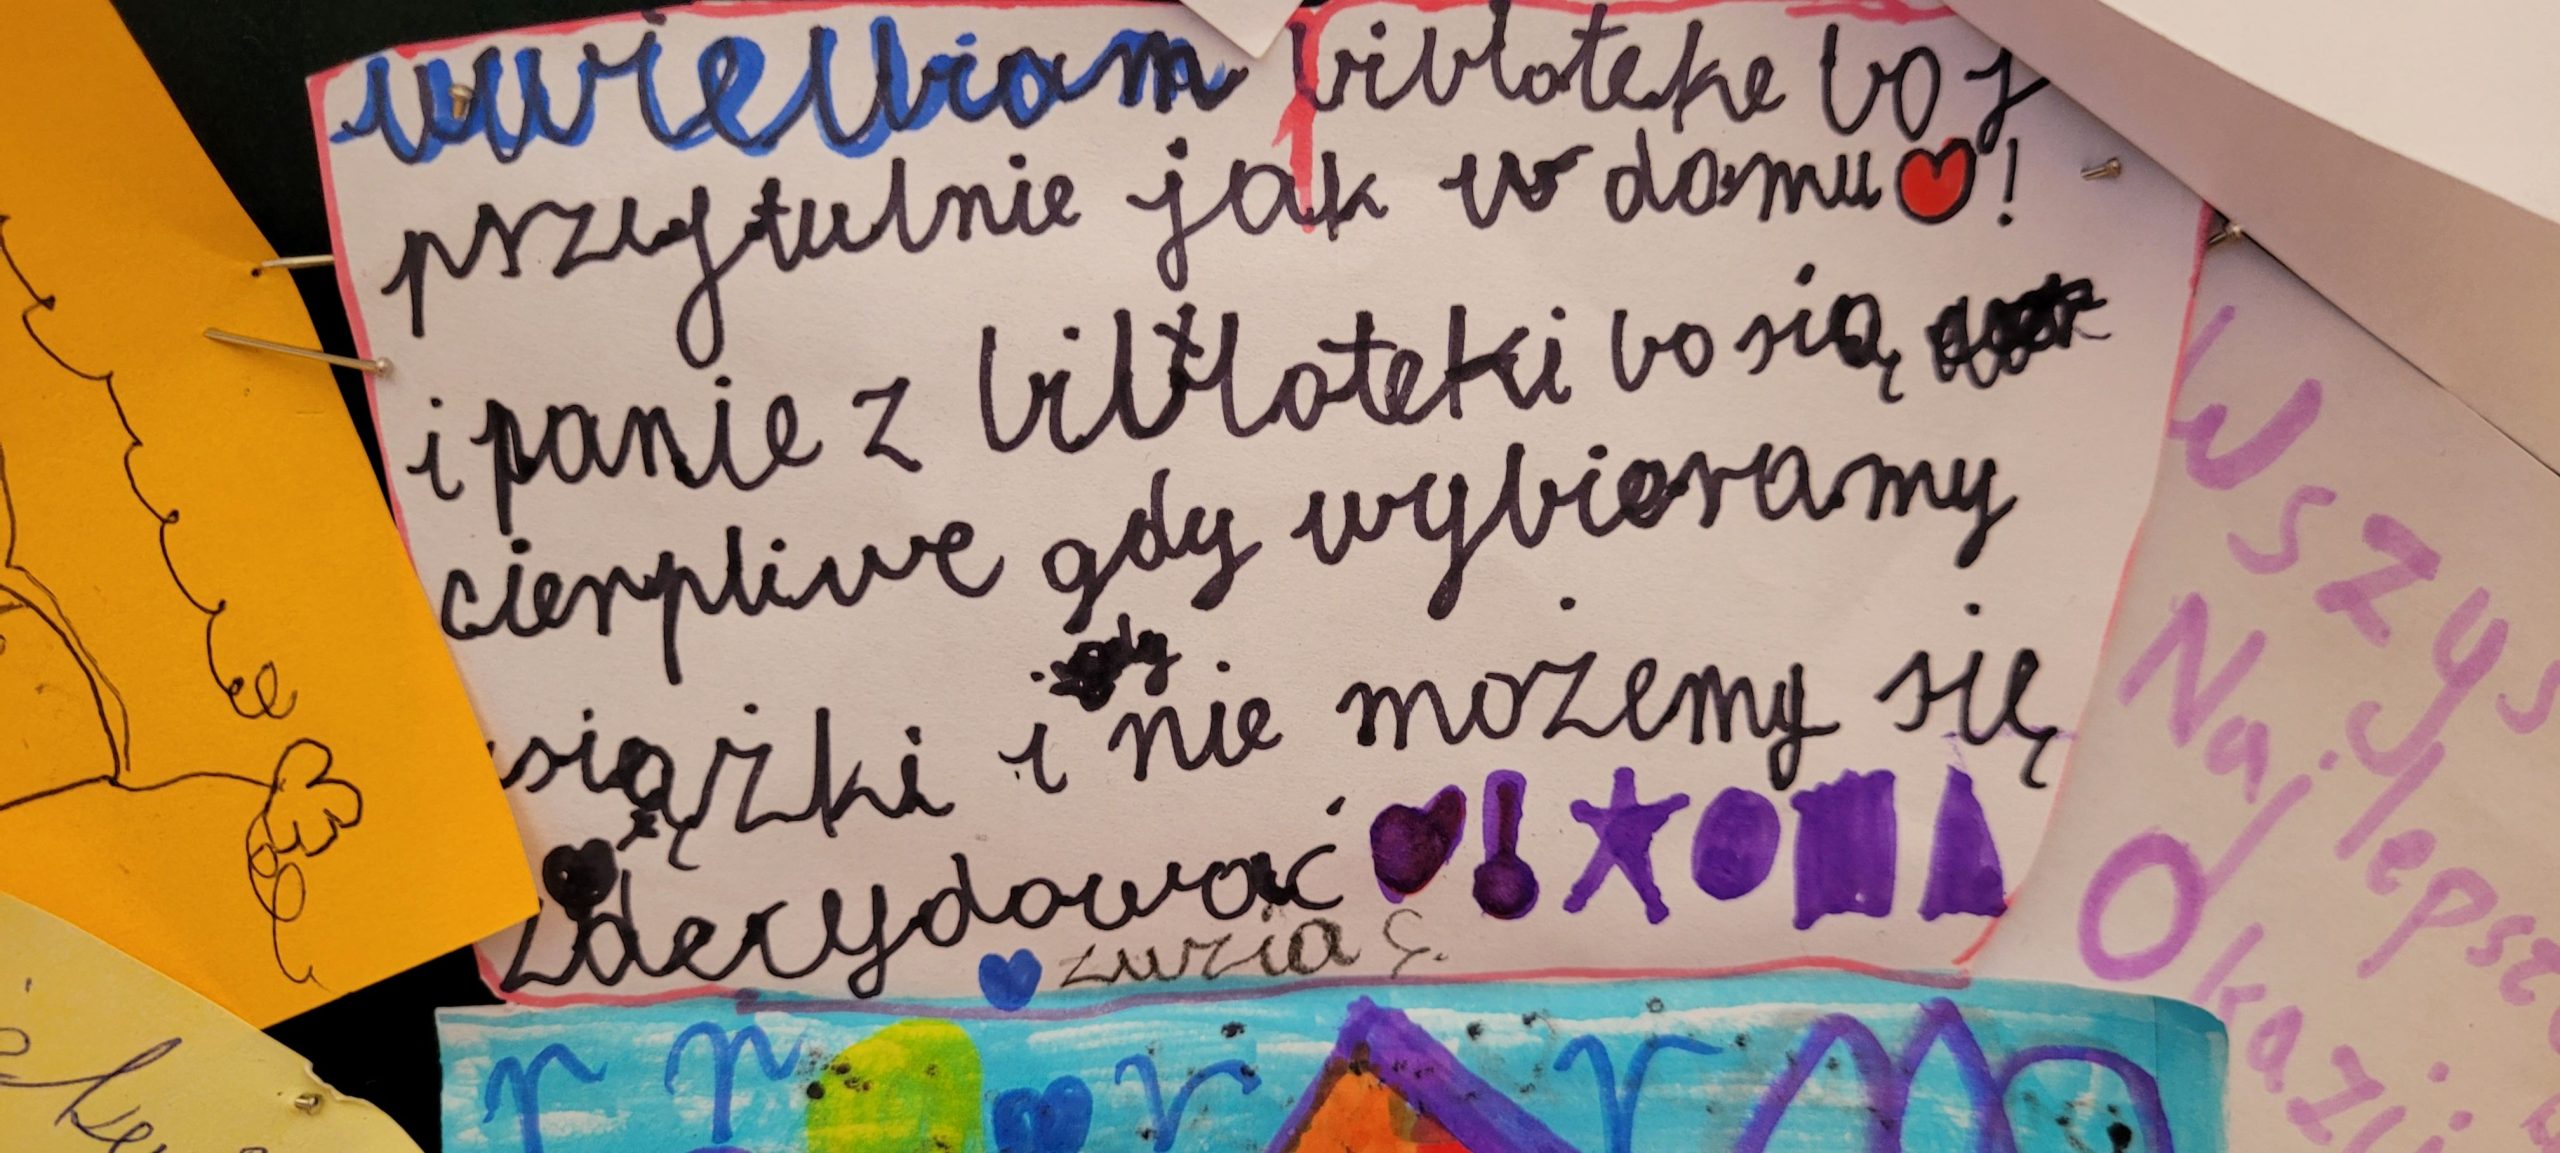 uwielbiam bibloteke bo j
przytulnie jak w domu !
i panie z bibloteki bo sią
cierpliwe gdy wybieramy
gdy
siążki i nie możemy się
zdecydować
zuzia S.
Wszys
Najlepsz
Okazji